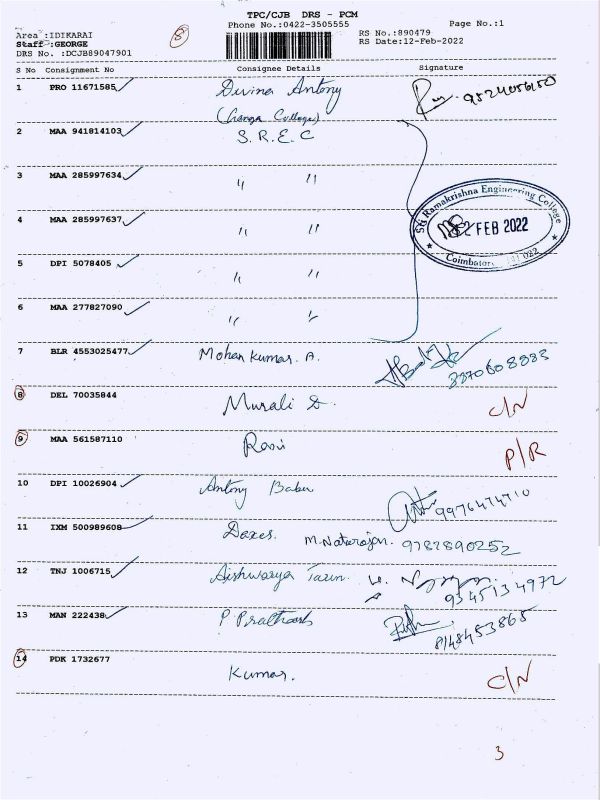 TPC/CJB DRS - PCM
Phone No.:0422-3505555 Page No.:1
Area :IDIKARAI 5 RS No.:890479
Staff :GEORGE RS Date:12-Feb-2022
DRS No. :DCJB89047901
S No Consignment No Consignee Details Signature
1 PRO 11671585 Divina Antony
(Ganga College)
2 MAA 941814103 S.R.E.C
3 MAA 285997634 " "
4 MAA 285997637 " "
Sri Ramakrishna Engineering College
2 FEB 2022
Coimbatore 022
5 DPI 5078405 " "
6 MAA 277827090 " "
7 BLR 4553025477 Mohan Kumar. A. 8870808883
8 DEL 70035844 Murali C/N
9 MAA 561587110 Ravi P/R
10 DPI 10026904 Antony Babu 9976474710
11 IXM 500989608 Daxes. M. Natarajan. 9787890252
12 TNJ 1006715 Aishwarya 9345134972
13 MAN 222438 P. 8148453865
14 PDK 1732677 Kumar. C/N
3